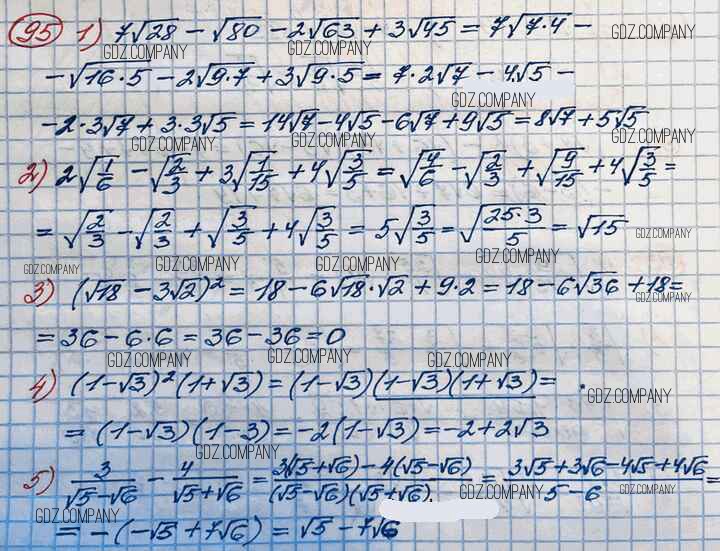 95 1) 7√28 − √80 − 2√63 + 3√45 = 7√7·4 − GDZ.COMPANY
GDZ.COMPANY GDZ.COMPANY
−√16·5 − 2√9·7 + 3√9·5 = 7·2√7 − 4√5 −
GDZ.COMPANY
−2·3√7 + 3·3√5 = 14√7 − 4√5 − 6√7 + 9√5 = 8√7 + 5√5
GDZ.COMPANY GDZ.COMPANY GDZ.COMPANY
2) 2√1/6 − √2/3 + 3√1/15 + 4√3/5 = √4/6 − √2/3 + √9/15 + 4√3/5 =
= √2/3 − √2/3 + √3/5 + 4√3/5 = 5√3/5 = √25·3/5 = √15 GDZ.COMPANY
GDZ.COMPANY GDZ.COMPANY GDZ.COMPANY GDZ.COMPANY
3) (√18 − 3√2)² = 18 − 6√18·√2 + 9·2 = 18 − 6√36 + 18 =
GDZ.COMPANY
= 36 − 6·6 = 36 − 36 = 0
GDZ.COMPANY GDZ.COMPANY GDZ.COMPANY
4) (1−√3)²(1+√3) = (1−√3)(1−√3)(1+√3) = GDZ.COMPANY
= (1−√3)(1−3) = −2(1−√3) = −2+2√3
GDZ.COMPANY
5) 3/(√5−√6) − 4/(√5+√6) = (3(√5+√6) − 4(√5−√6))/((√5−√6)(√5+√6)) = (3√5+3√6−4√5+4√6)/(5−6) =
GDZ.COMPANY GDZ.COMPANY GDZ.COMPANY
= −(−√5 + 7√6) = √5 − 7√6